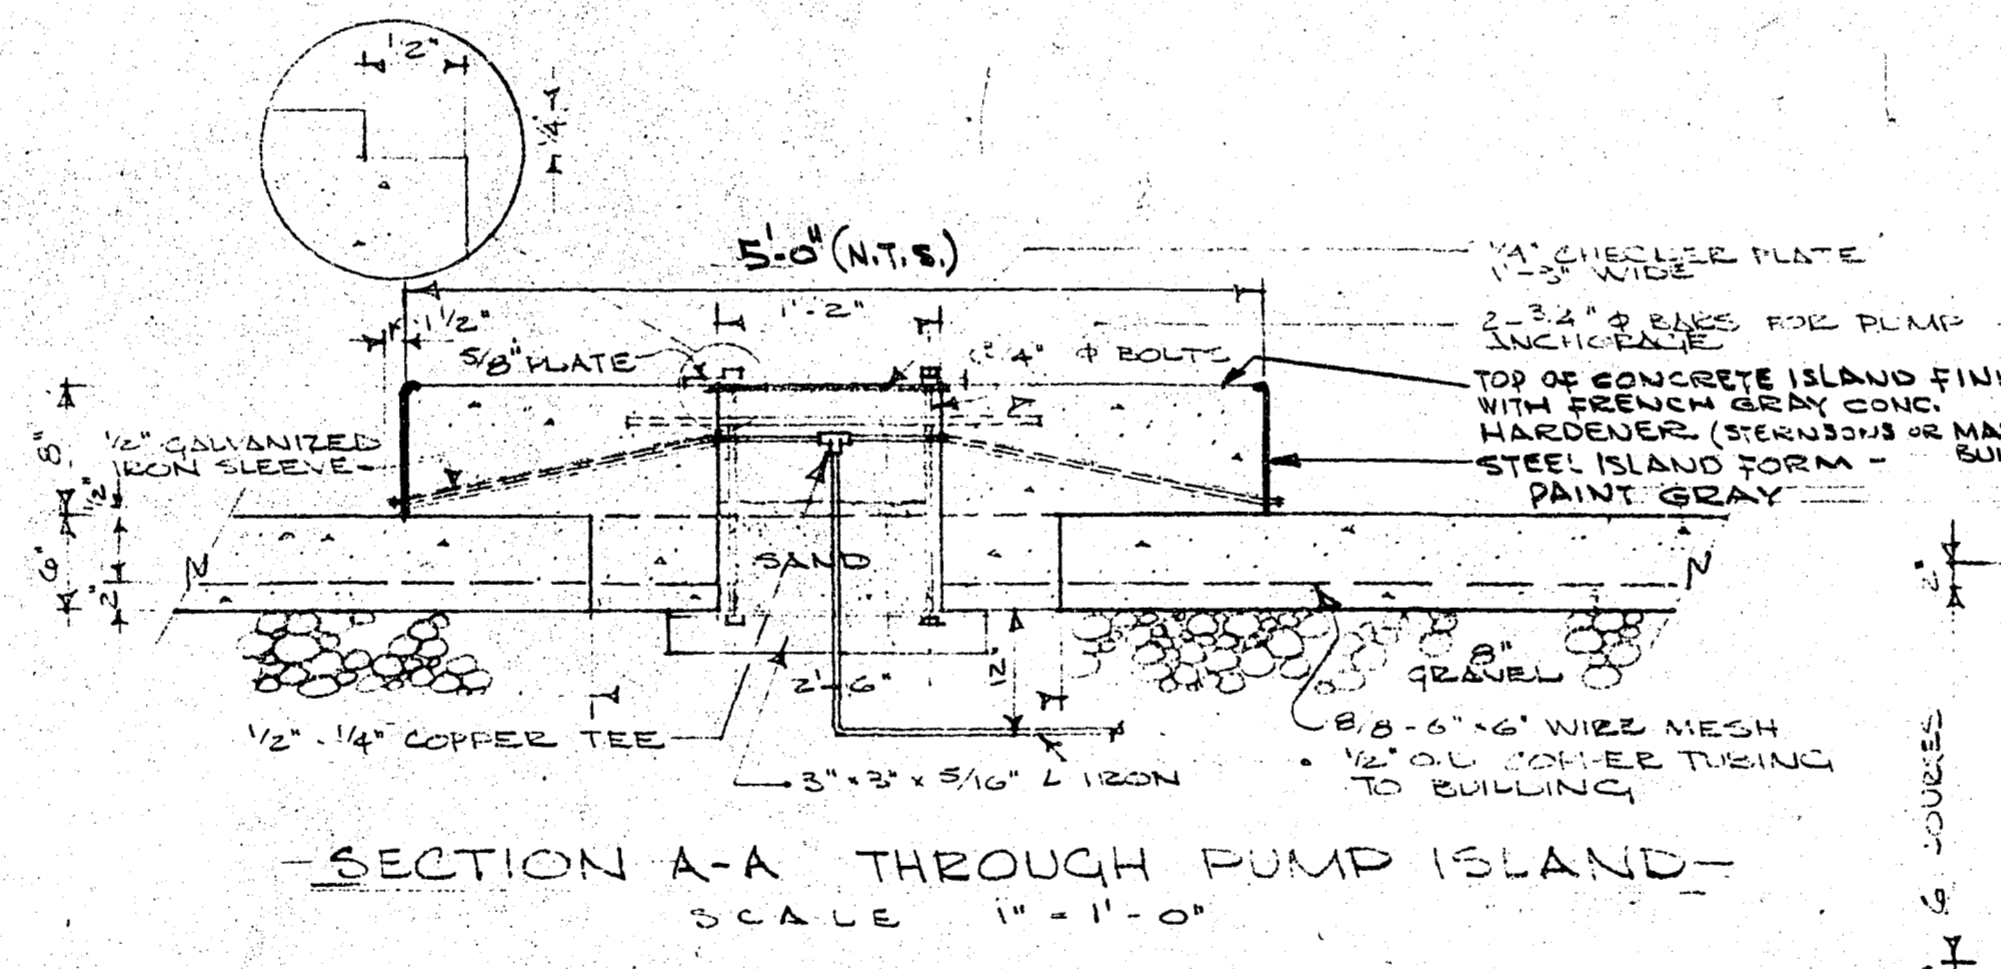 1/2"
1/4"
5'-0" (N.T.S.)
1/4" CHECKER PLATE
1'-3" WIDE
1'-2"
1 1/2"
2-3/4" Φ BARS FOR PUMP
ANCHORAGE
5/8" PLATE
Φ BOLTS
TOP OF CONCRETE ISLAND
WITH FRENCH GRAY CONC.
HARDENER (STERNSONS OR
STEEL ISLAND FORM -
PAINT GRAY
1/2" GALVANIZED
IRON SLEEVE
8"
1/2"
6"
2"
SAND
2"
12"
2'-6"
8"
GRAVEL
1/2" - 1/4" COPPER TEE
8/8 - 6" x 6" WIRE MESH
3" x 3" x 5/16" L IRON
1/2" COPPER TUBING
TO BUILDING
-SECTION A-A THROUGH PUMP ISLAND-
SCALE 1" = 1'-0"